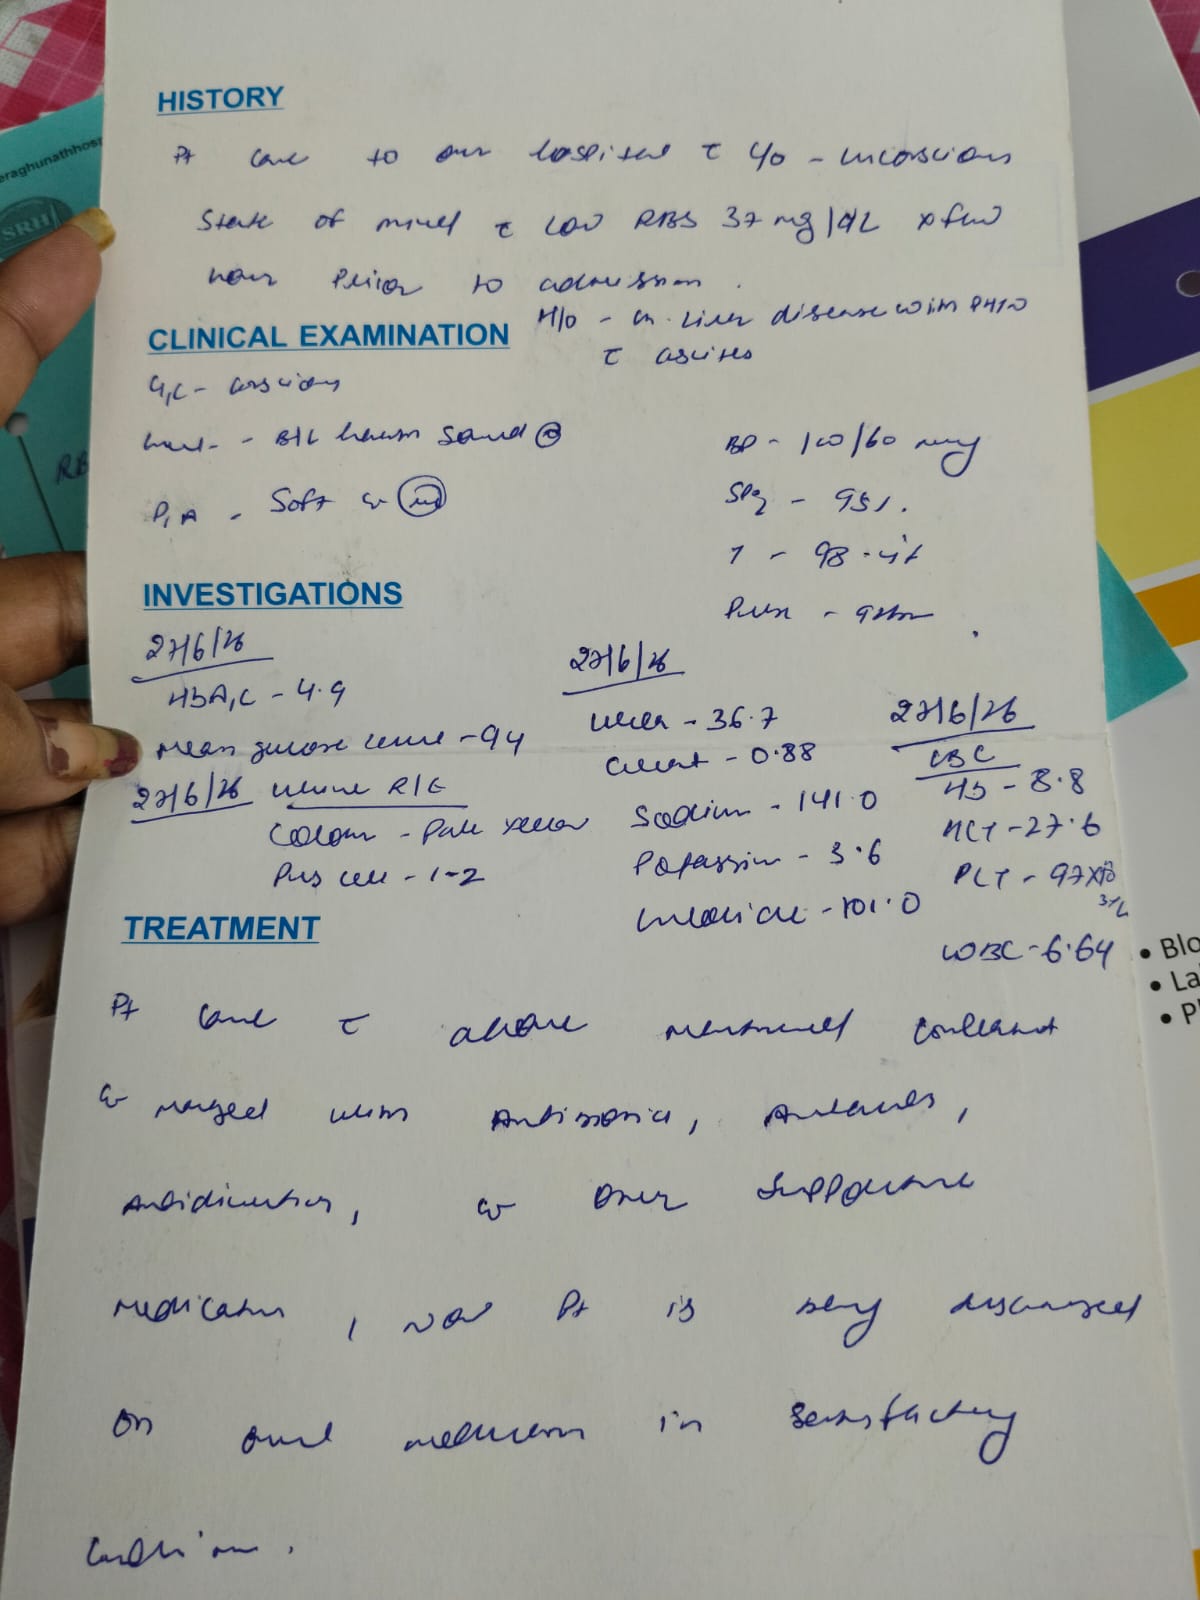 HISTORY
Pt came to our hospital c̄ c/o - unconscious
State of mind c̄ low RBS 37 mg/dL x few
hour Prior to admission.
H/o - Ch. Liver disease with PHTN
c̄ ascites
CLINICAL EXAMINATION
G,C - conscious
- B/L heard Sound
P,A - Soft
BP - 100/60 mmHg
SPO2 - 95%.
T - 98
Pulse -
INVESTIGATIONS
27/6/26
HbA1C - 4.9
Mean glucose level - 94
27/6/26 Urine R/E
Colour - Pale Yellow
Pus cell - 1-2
27/6/26
Urea - 36.7
Creat - 0.88
Sodium - 141.0
Potassium - 3.6
Chloride - 101.0
27/6/26
CBC
Hb - 8.8
HCT - 27.6
PLT - 97x10
3/L
WBC - 6.64
TREATMENT
Pt came c̄ above mentioned complaint
& managed with Antibiotics, Antacids,
Antidiuretics, & other supportive
medication, now Pt is being discharged
on oral medication in satisfactory
condition.
eraghunathhosp
SRH
RB
• Blo
• La
• P